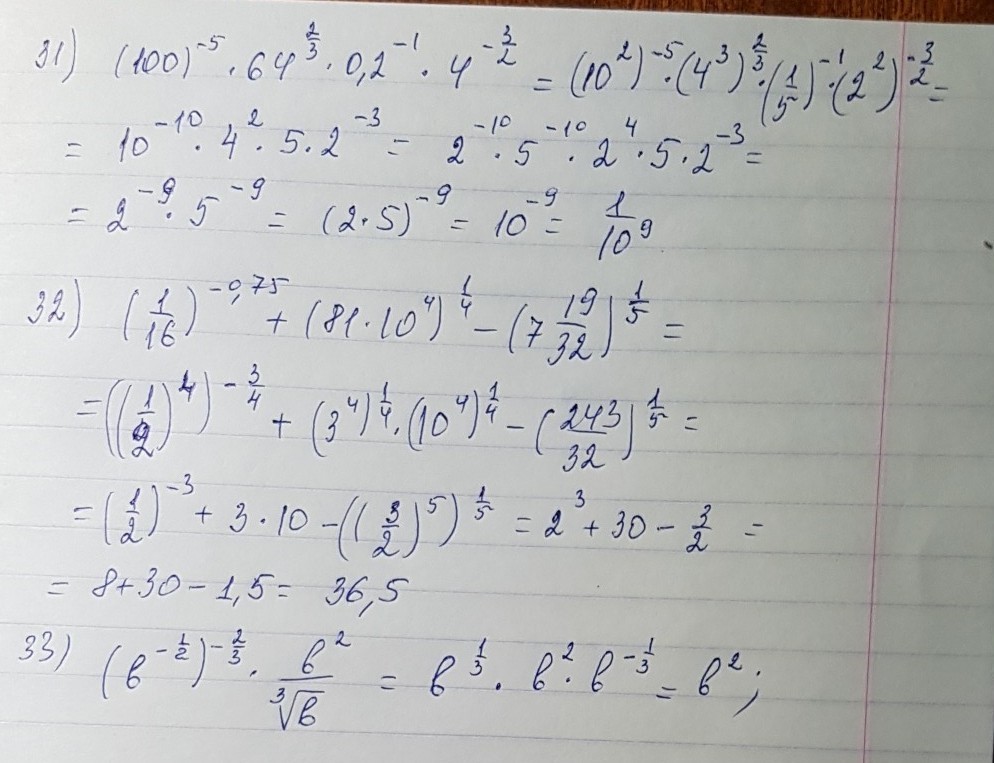 31) (100)^{-5} · 64^{\frac{2}{3}} · 0,2^{-1} · 4^{-\frac{3}{2}} = (10^2)^{-5} · (4^3)^{\frac{2}{3}} · (\frac{1}{5})^{-1} · (2^2)^{-\frac{3}{2}} =
= 10^{-10} · 4^2 · 5 · 2^{-3} = 2^{-10} · 5^{-10} · 2^4 · 5 · 2^{-3} =
= 2^{-9} · 5^{-9} = (2·5)^{-9} = 10^{-9} = \frac{1}{10^9}
32) (\frac{1}{16})^{-0,75} + (81·10^4)^{\frac{1}{4}} - (7\frac{19}{32})^{\frac{1}{5}} =
= ((\frac{1}{2})^4)^{-\frac{3}{4}} + (3^4)^{\frac{1}{4}} · (10^4)^{\frac{1}{4}} - (\frac{243}{32})^{\frac{1}{5}} =
= (\frac{1}{2})^{-3} + 3·10 - ((\frac{3}{2})^5)^{\frac{1}{5}} = 2^3 + 30 - \frac{3}{2} =
= 8+30-1,5 = 36,5
33) (b^{-\frac{1}{2}})^{-\frac{2}{3}} · \frac{b^2}{\sqrt[3]{b}} = b^{\frac{1}{3}} · b^2 · b^{-\frac{1}{3}} = b^2;